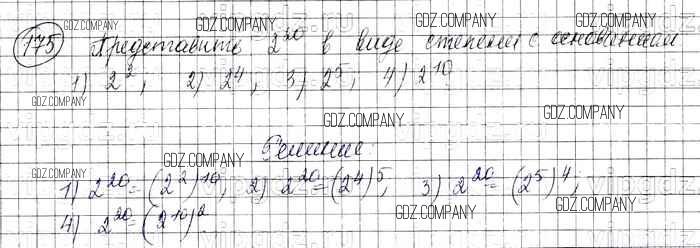 175 Представить 2^20 в виде степени с основанием
1) 2^2, 2) 2^4, 3) 2^5, 4) 2^10
Решение
1) 2^20 = (2^2)^10; 2) 2^20 = (2^4)^5, 3) 2^20 = (2^5)^4;
4) 2^20 = (2^10)^2
GDZ.COMPANY
GDZ.COMPANY
GDZ.COMPANY
GDZ.COMPANY
GDZ.COMPANY
GDZ.COMPANY
GDZ.COMPANY
GDZ.COMPANY
GDZ.COMPANY
GDZ.COMPANY
GDZ.COMPANY
GDZ.COMPANY